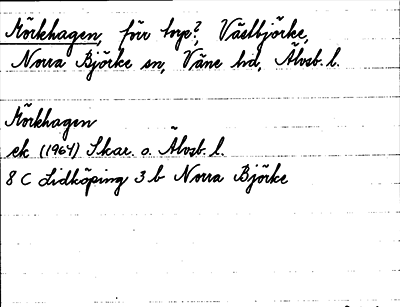 Mörkhagen, förr torp?, Västbjörke,
Norra Björke sn, Väne hd, Älvsb. l.
Mörkhagen
ek (1964) Skar. o. Älvsb. l.
8 C Lidköping 3 b Norra Björke